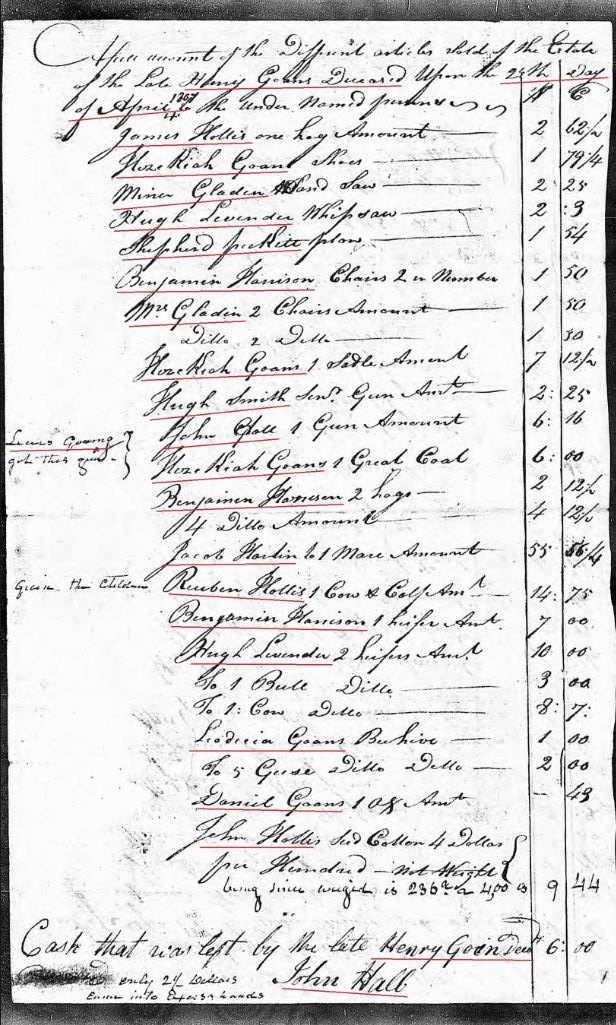 A full account of the Diffrunt articles sold of the Estate
of the Late Henry Goans Deceased Upon the 24th Day
of April 1807 to the under Named persons
$ C
James Hollis one hog Amount 2 62/2
Hezekiah Goan Shoes 1 79/4
Miner Gladen Hand Saw 2 25
Hugh Levender Whipsaw 2 : 3
Shepherd peckett plow 1 54
Benjamin Harrison Chairs 2 in Number 1 50
Mrs Gladin 2 Chairs Amount 1 50
Ditto 2 Ditto 1 50
Hezekiah Goans 1 Sadle Amount 7 12/2
Hugh Smith Senr Gun Amt 2: 25
John 1 Gun Amount 6: 16
Lewis Going
got this gun
Hezekiah Goans 1 Great Coat 6: 00
Benjamin Harrison 2 hogs 2 12/2
4 Ditto Amount 4 12/2
Jacob Hardin to 1 Mare Amount 55 56/4
the Children Reuben Hollis 1 Cow & Calf Amt 14: 75
Benjamin Harrison 1 heifer Amt 7 00
Hugh Levender 2 heifers Amt 10 00
To 1 Bull Ditto 3 00
To 1: Cow Ditto 8: 7:
Leodicia Goans Beehive 1 00
To 5 Geese Ditto Ditto 2 00
Daniel Goans 1 Ox Amt - 43
John Hollis Seed Cotton 4 Dollars
per Hundred Not Weight
being since weiged is 236 a 4,00 is 9 44
Cash that was left by the late Henry Goin Decd 6: 00
only 2/ Dollars
Came into hands
John Hall